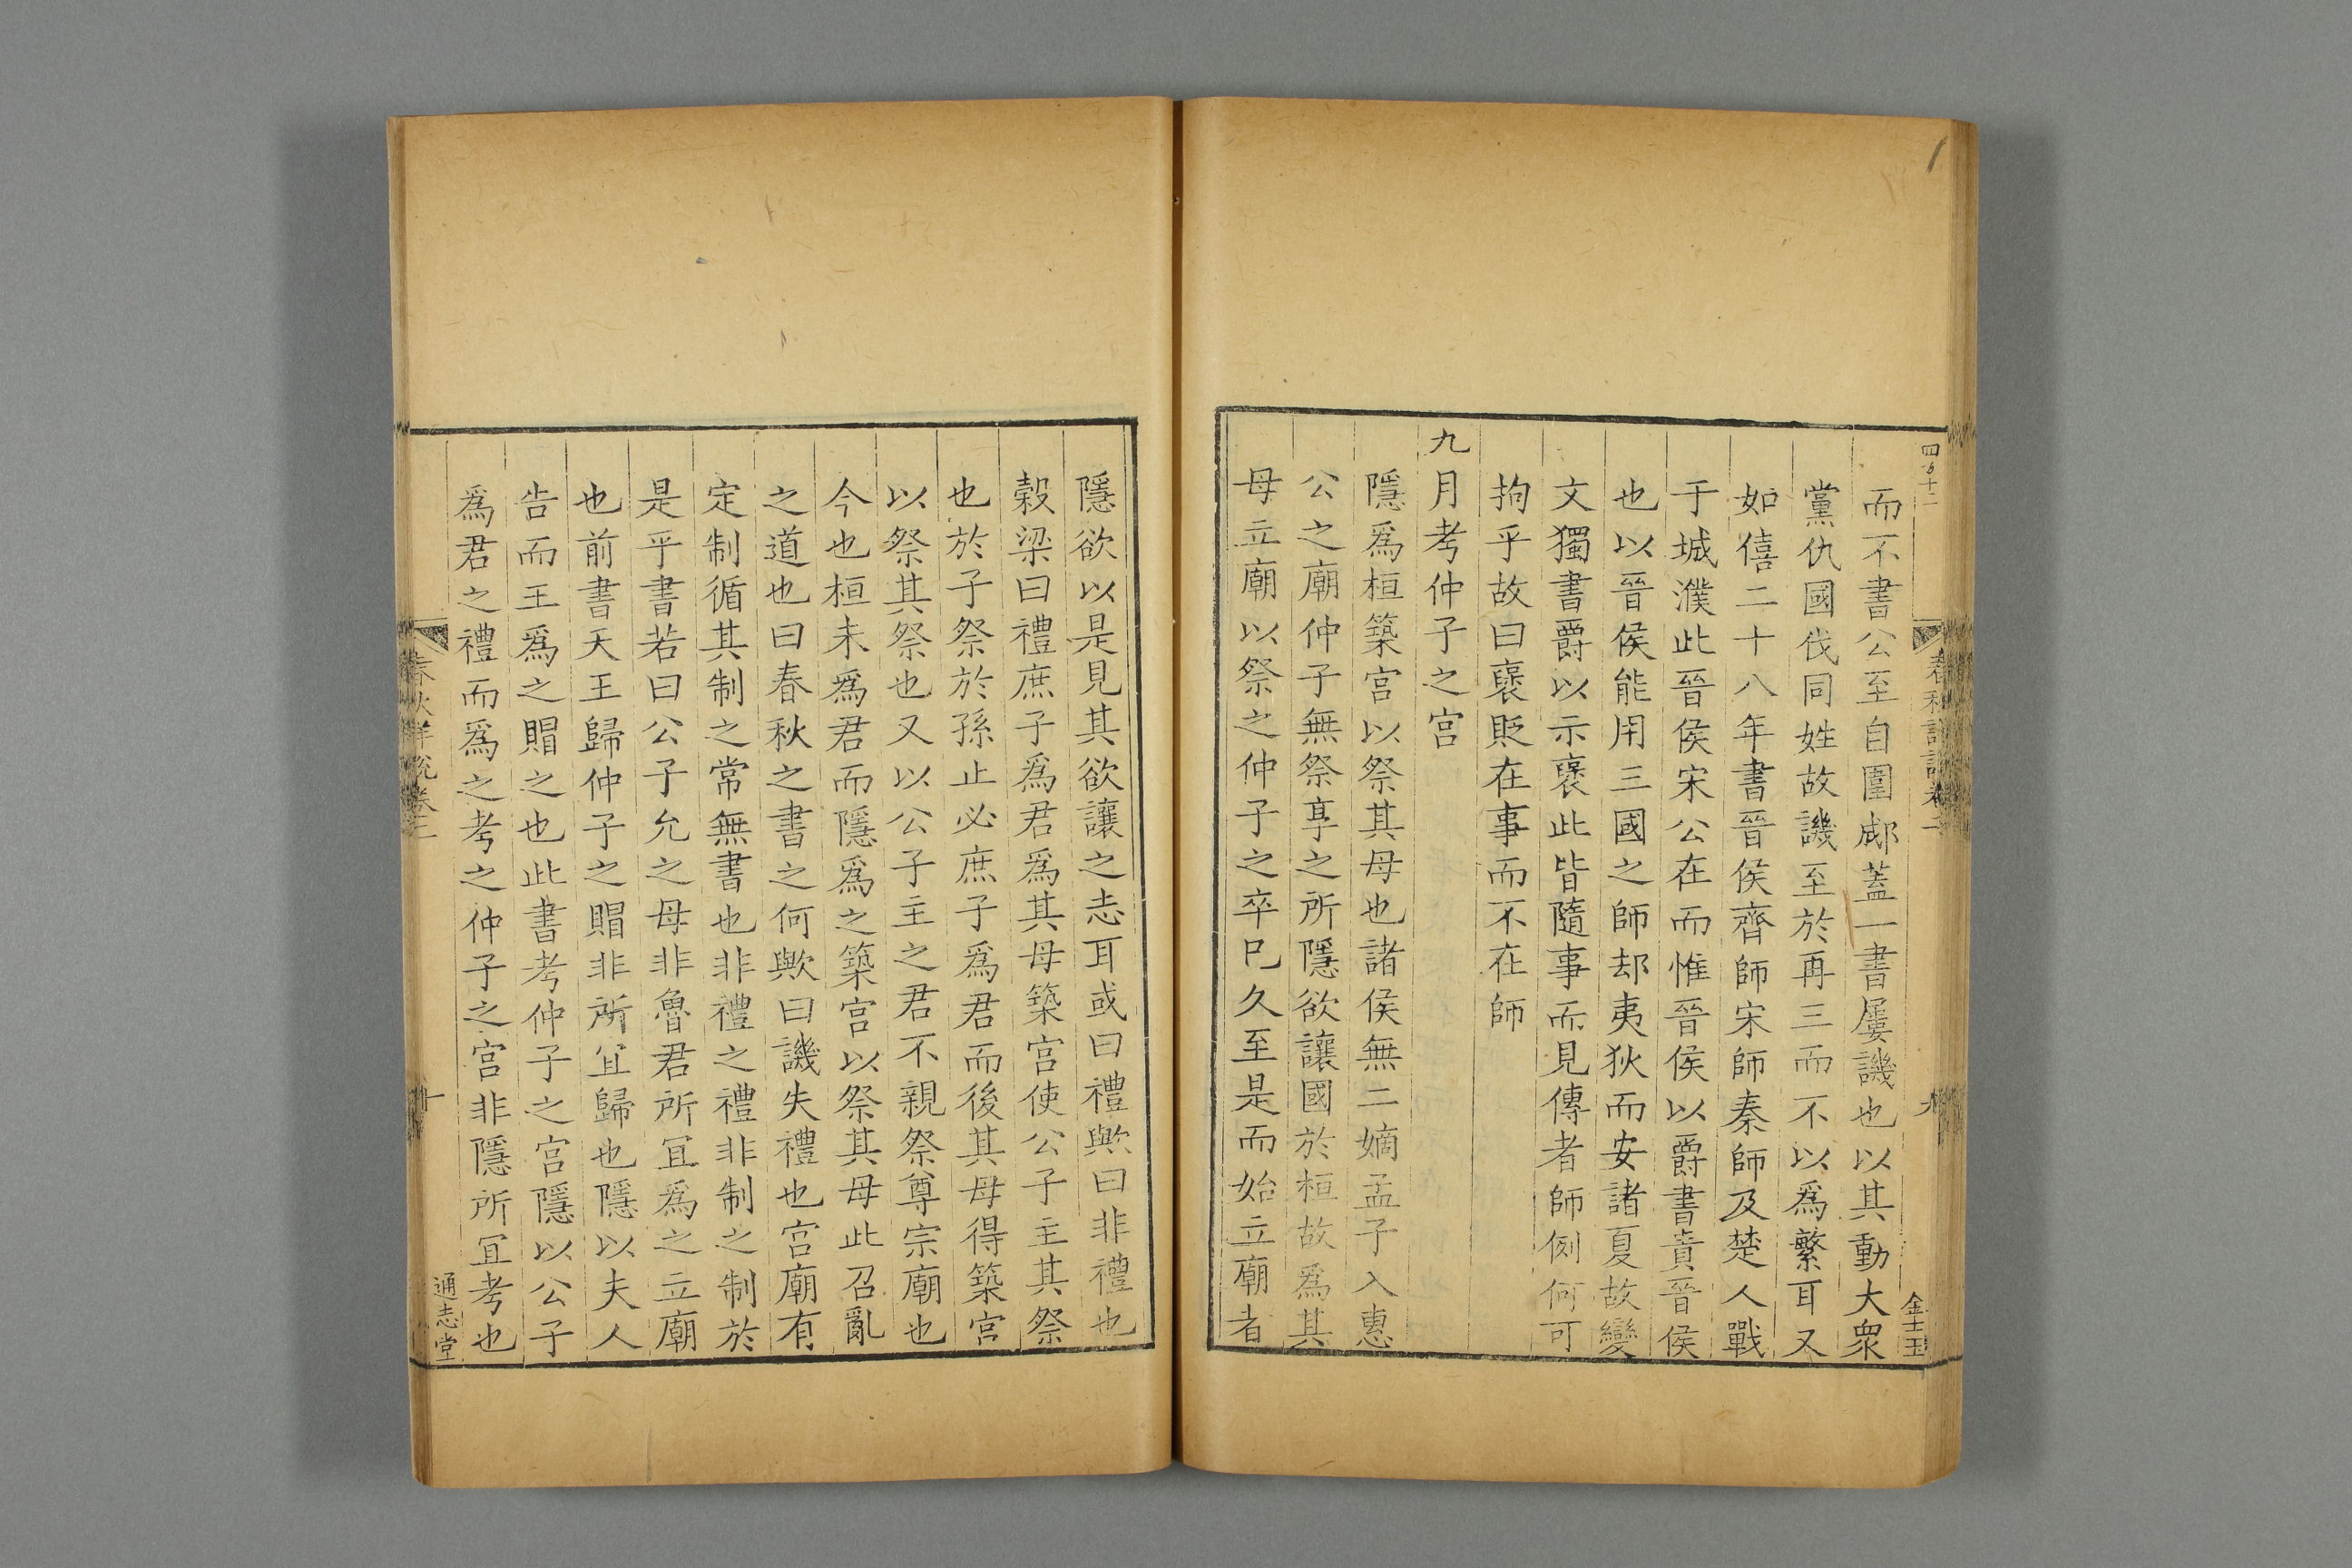 而不書公至自圍郕蓋一書屢譏也以其動大衆
黨仇國伐同姓故譏至於再三而不以爲繁耳又
如僖二十八年書晉侯齊師宋師秦師及楚人戰
于城濮此晉侯宋公在而惟晉侯以爵書貴晉侯
也以晉侯能用三國之師却夷狄而安諸夏故變
文獨書爵以示襃此皆隨事而見傳者師例何可
拘乎故曰襃貶在事而不在師
九月考仲子之宫
隱爲桓築宫以祭其母也諸侯無二嫡孟子入惠
公之廟仲子無祭享之所隱欲讓國於桓故爲其
母立廟以祭之仲子之卒已久至是而始立廟者
金士玉
隱欲以是見其欲讓之志耳或曰禮歟曰非禮也
榖梁曰禮庶子爲君爲其母築宫使公子主其祭
也於子祭於孫止必庶子爲君而後其母得築宫
以祭其祭也又以公子主之君不親祭尊宗廟也
今也桓未爲君而隱爲之築宫以祭其母此召亂
之道也曰春秋之書之何歟曰譏失禮也宫廟有
定制循其制之常無書也非禮之禮非制之制於
是乎書若曰公子允之母非魯君所宜爲之立廟
也前書天王歸仲子之賵非所宜歸也隱以夫人
告而王爲之賵之也此書考仲子之宫隱以公子
爲君之禮而爲之考之仲子之宫非隱所宜考也
春秋詳說卷二
十
通志堂